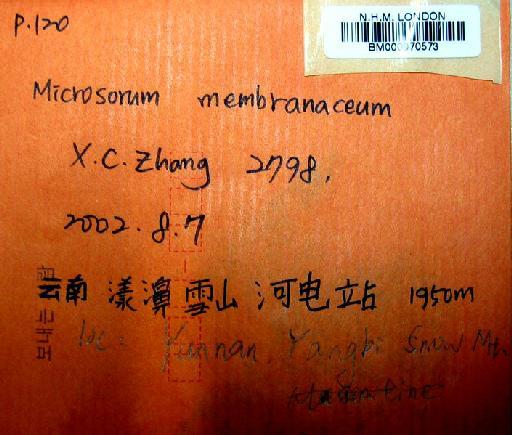 P.120
N.H.M. LONDON
BM000970573
Microsorum membranaceum
X.C. Zhang 2798.
2002.8.7
云南 漾濞 雪山 河电站 1950m
보내는
loc: Yunnan, Yangbi Snow Mt.